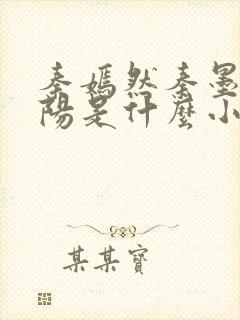 秦嫣然秦墨
陽是什麼小
某某寶